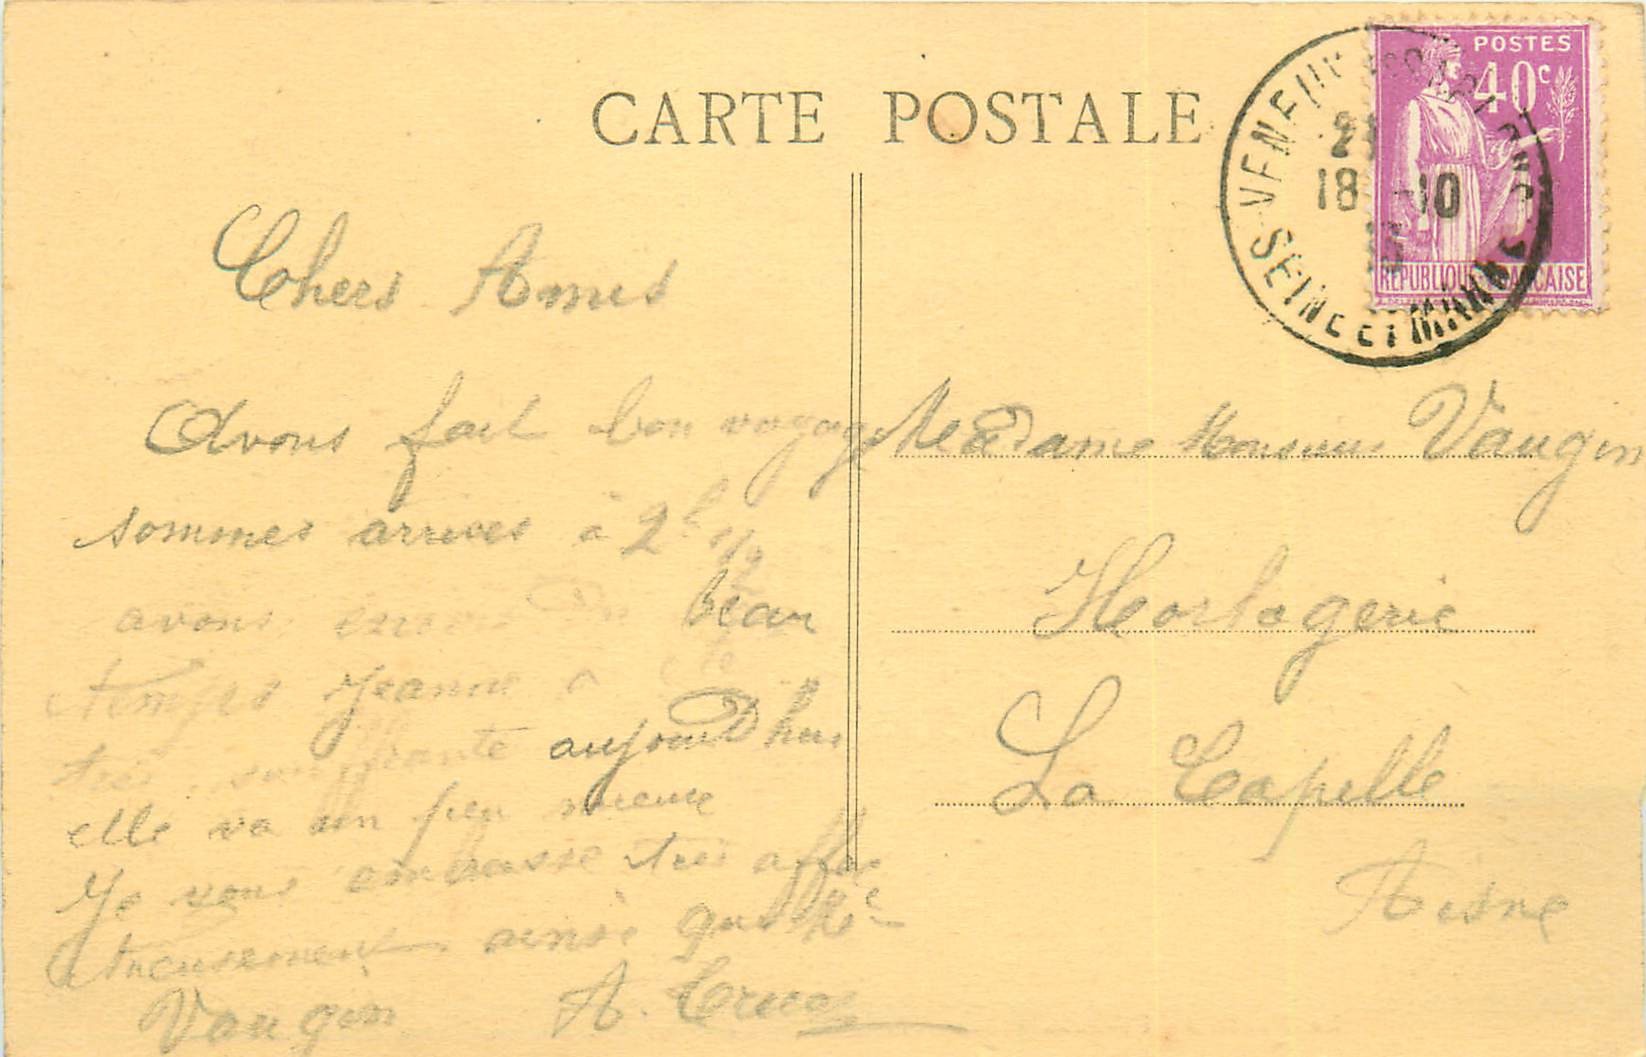 CARTE POSTALE
POSTES
40c
REPUBLIQUE FRANCAISE
18 -10
SEINE ET MARNE
Chers Amis
Avons fait bon voyage
sommes arrives à 2h 1/2
avons du beau
temps Jeanne a
tres souffrante aujourDhui
elle va un peu mieux
Je vous embrasse tres affec
tueusement ainsi que Me
Vaugin A.
Madame Monsieur Vaugin
Horlogerie
La Capelle
Aisne